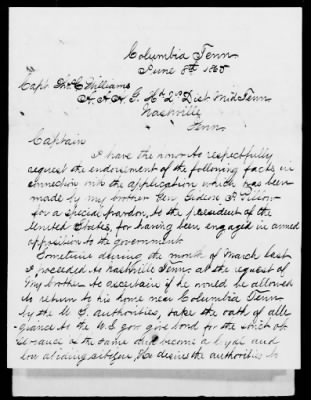 Columbia Tenn
June 8th 1865
Capt Thos C Williams
A. A. A. G. Hd Qrs Dist Mid Tenn
Nashville
Tenn
Captain
I have the honor to respectfully
request the endorsement of the following facts in
connection with the application which has been
made by my brother Gen. Gideon J. Pillow
for a special pardon, to the president of the
United States, for having been engaged in armed
opposition to the government.
Sometime during the month of March last
I proceeded to Nashville Tenn, at the request of
my brother to ascertain if he would be allowed
to return to his home near Columbia Tenn
by the U S. authorities, take the oath of alle-
giance to the U.S. gov give bond for the strict ob-
servance of the same and become a loyal and
law abiding citizen, He desires the authorities to